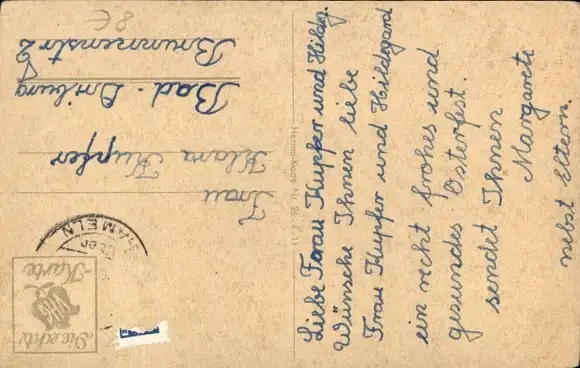 Liebe Frau Kupfer und Hildeg.
Wünsche Ihnen liebe
Frau Kupfer und Hildegard
ein recht frohes und
gesundes Osterfest.
sendet Ihnen
Margarete
nebst Eltern.
Frau
Klara Kupfer
Bad-Driburg
Brunnenstr 2
8 €
HAMELN
Die echte
Karte